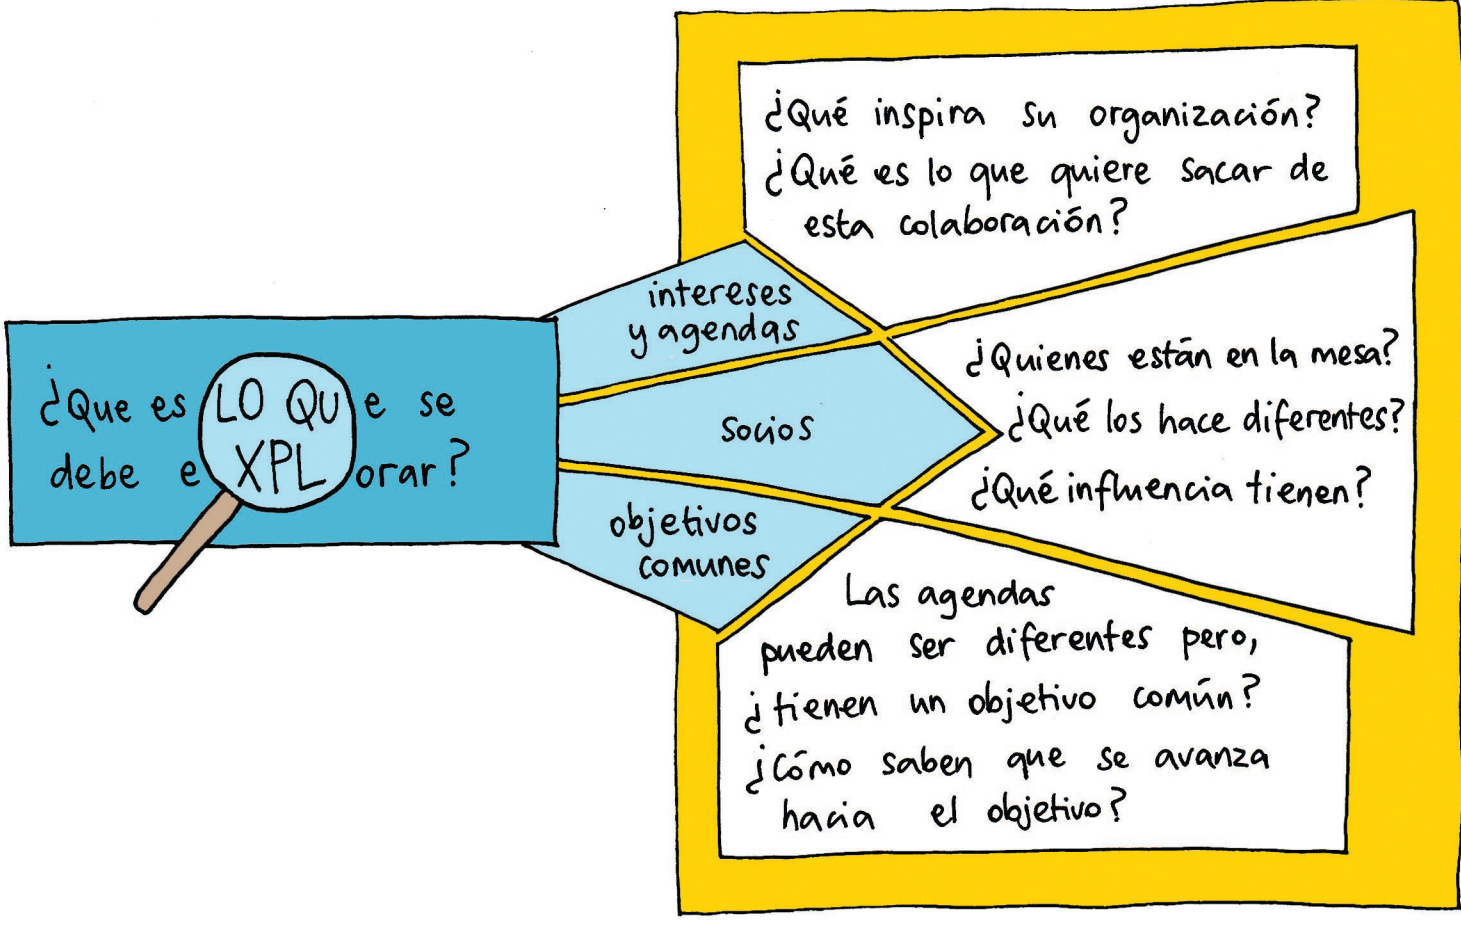 ¿Que es LO QUe se
debe eXPLorar?
intereses
y agendas
¿Qué inspira su organización?
¿Qué es lo que quiere sacar de
esta colaboración?
socios
¿Quienes están en la mesa?
¿Qué los hace diferentes?
¿Qué influencia tienen?
objetivos
comunes
Las agendas
pueden ser diferentes pero,
¿tienen un objetivo común?
¿Cómo saben que se avanza
hacia el objetivo?